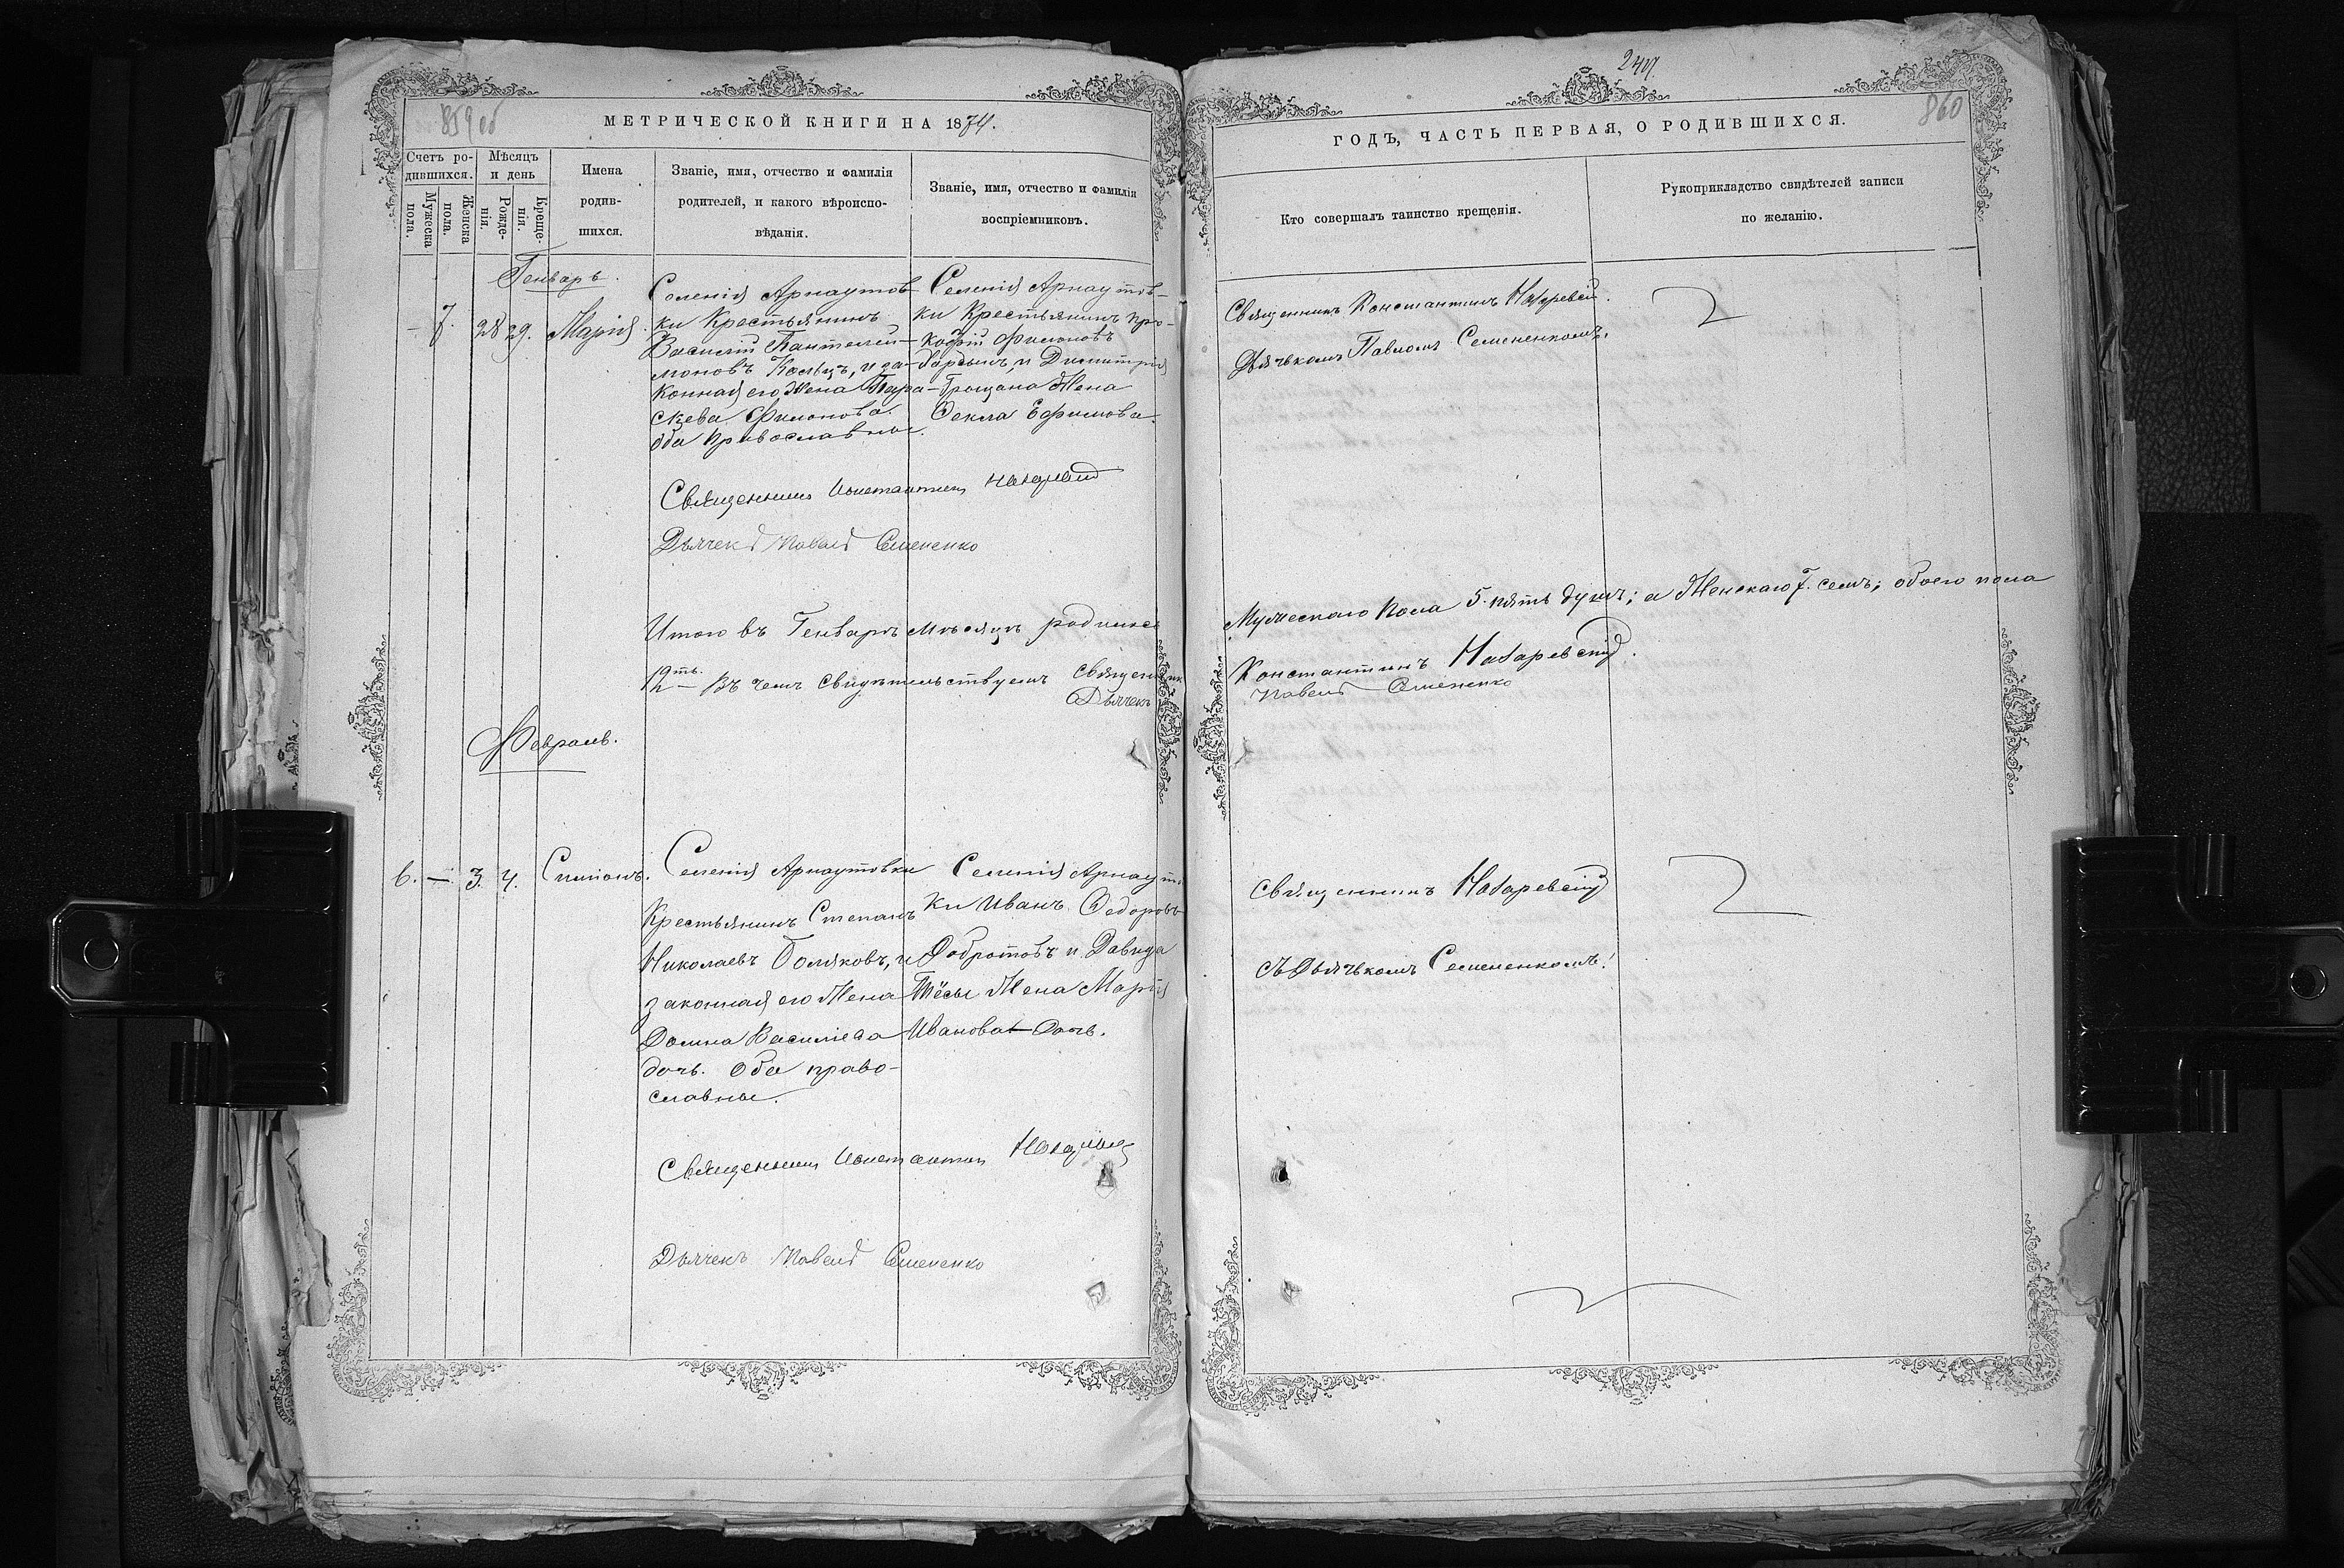 859 об
МЕТРИЧЕСКОЙ КНИГИ НА 1874.
Счетъ ро-
дившихся.
Мѣсяцъ
и день
Мужеска
пола.
Женска
пола.
Рожде-
нія.
Креще-
нія.
Имена
родив-
шихся.
Званіе, имя, отчество и фамилія
родителей, и какого вѣроиспо-
вѣданія.
Званіе, имя, отчество и фамилія
воспріемниковъ.
Генварь.
- 7. 28 29. Марія.
Селенія Арнаутов-
ки Крестьянинъ
Василій Пантелей-
моновъ, и за-
конная его Жена Пара-
скева Филипова.
оба православные.
Селенія Арнаутов-
ки Крестьянинъ Про-
кофій
и Димитрія
Жена
Ѳекла Ефимова.
Священникъ Константинъ Назаревскій
Дьячекъ Павелъ Семененко
Итого въ Генварѣ мѣсяцѣ родилось
12ть. Въ чемъ свидѣтельствуемъ Священникъ
Дьячекъ
Февраль.
6. — 3. 4. Симіонъ.
Селенія Арнаутовки
Крестьянинъ Степанъ
Николаевъ, и
законная его Жена
Домна Василіева
дочь. Оба право-
славные.
Селенія Арнаутов-
ки Иванъ Ѳедоровъ
Добротовъ и Давида
Жена Марія
Иванова Дочь.
Священникъ Константинъ Назаревскій
Дьячекъ Павелъ Семененко
247.
860
ГОДЪ, ЧАСТЬ ПЕРВАЯ, О РОДИВШИХСЯ.
Кто совершалъ таинство крещенія.
Рукоприкладство свидѣтелей записи
по желанію.
Священникъ Константинъ Назаревскій.
Дьячкомъ Павломъ Семененкомъ.
Мужескаго пола 5. пять душъ; а Женскаго 7. семь; обоего пола
Константинъ Назаревскій.
Павелъ Семененко
Священникъ Назаревскій
съ Дьячкомъ Семененкомъ.